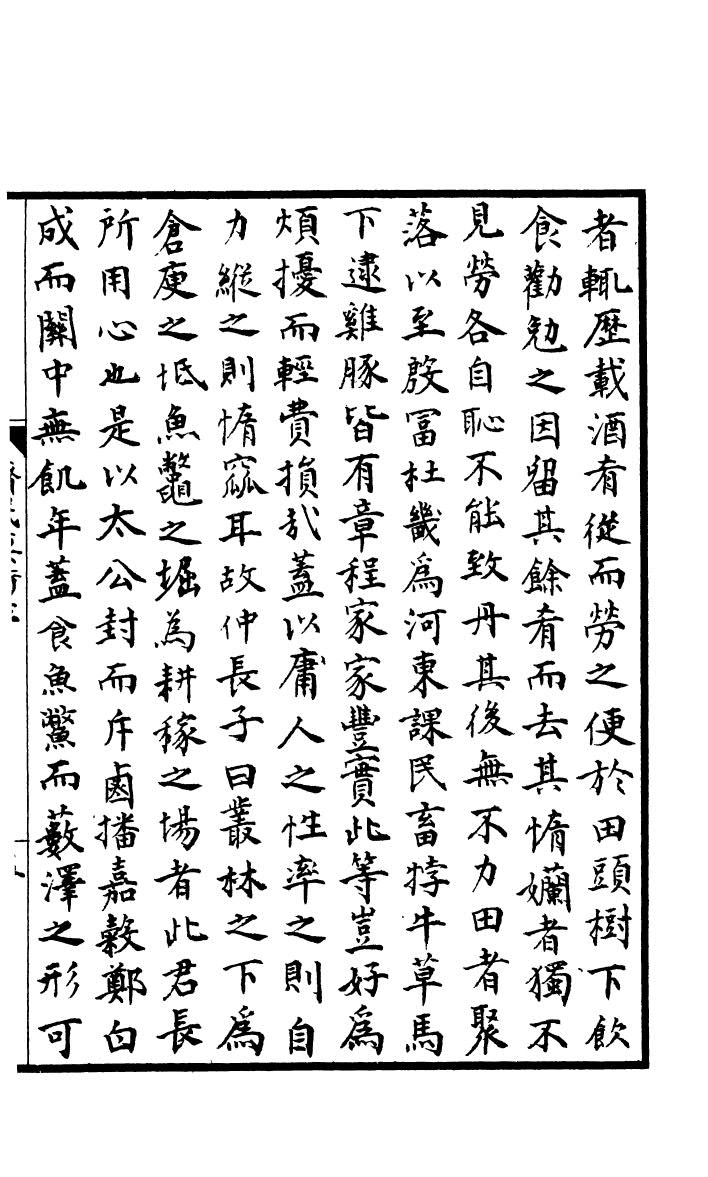 者輒歴載酒肴從而勞之便於田頭樹下飲
食勸勉之因留其餘肴而去其惰孏者獨不
見勞各自恥不能致丹其後無不力田者聚
落以至殷冨杜畿爲河東課民畜牸牛草馬
下逮雞豚皆有章程家家豐實此等豈好爲
煩擾而輕費損㢤蓋以庸人之性率之則自
力縱之則惰窳耳故仲長子曰叢林之下爲
倉庾之坻魚鼈之堀為耕稼之場者此君長
所用心也是以太公封而斥鹵播嘉榖鄭白
成而關中無飢年蓋食魚鱉而藪澤之形可